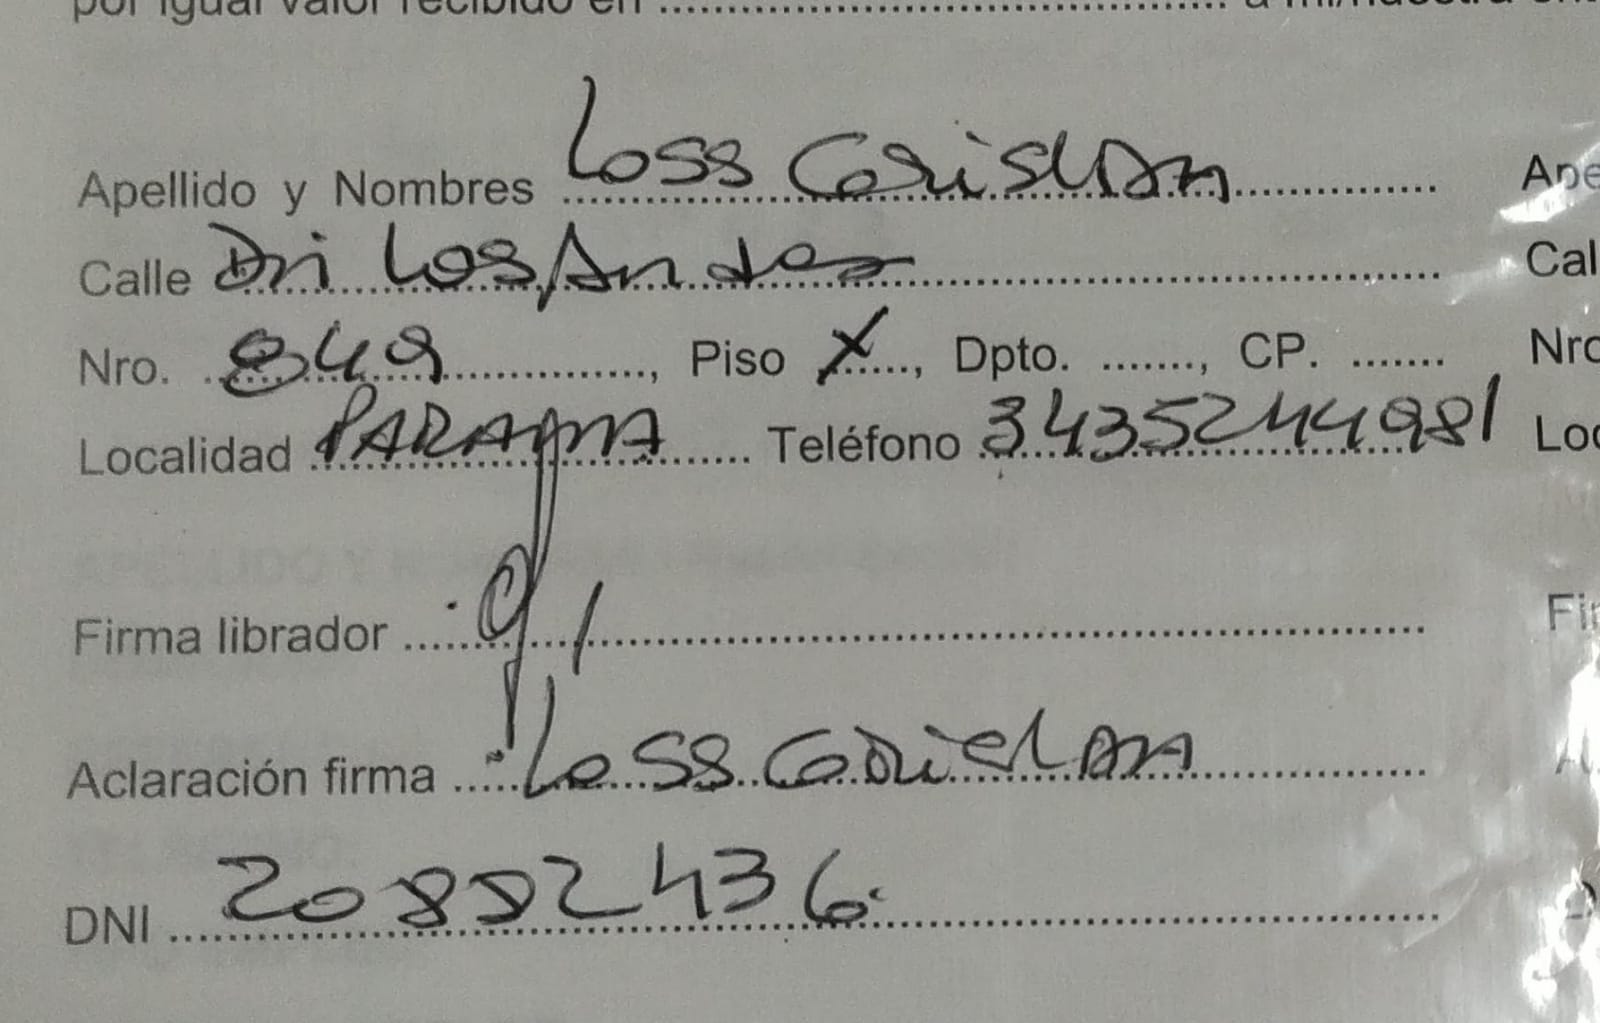 por igual valor recibido en ........................ a mi/nuestra
Apellido y Nombres Loss Cristian
Calle Dri Los Andes
Nro. 849, Piso X, Dpto. ......., CP. .......
Localidad PARANA Teléfono 3435244981
Firma librador
Aclaración firma Loss Cristian
DNI 20882436
Ape
Cal
Nro
Loc
Fir